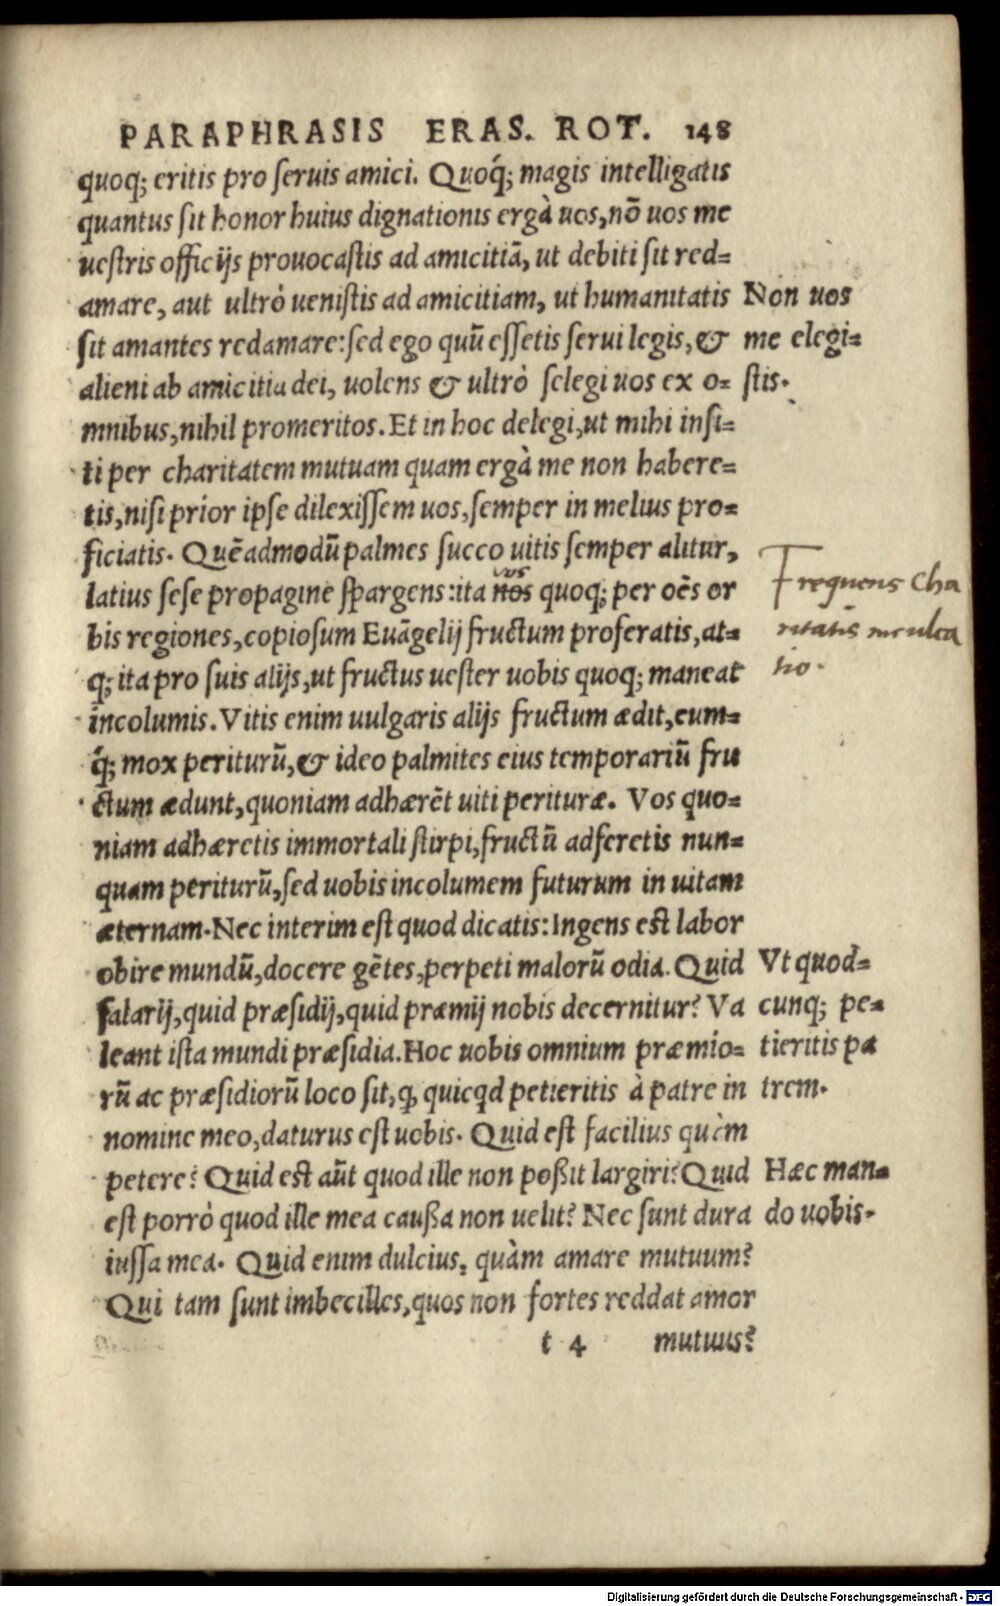 PARAPHRASIS ERAS. ROT. 148
quoq; eritis pro seruis amici. Quóq́; magis intelligatis
quantus sit honor huius dignationis ergà uos, nõ uos me
uestris officijs prouocastis ad amicitiã, ut debiti sit red=
amare, aut ultrò uenistis ad amicitiam, ut humanitatis
sit amantes redamare: sed ego quũ essetis serui legis, &
alieni ab amicitia dei, uolens & ultrò selegi uos ex o=
mnibus, nihil promeritos. Et in hoc delegi, ut mihi insi=
ti per charitatem mutuam quam ergà me non habere=
tis, nisi prior ipse dilexissem uos, semper in melius pro=
ficiatis. Quẽadmodũ palmes succo uitis semper alitur,
uos
latius sese propagine spargens: ita nos quoq; per oẽs or
bis regiones, copiosum Euãgelij fructum proferatis, at=
q; ita pro suis alijs, ut fructus uester uobis quoq; maneat
incolumis. Vitis enim uulgaris alijs fructum ædit, eum=
q́; mox periturũ, & ideo palmites eius temporariũ fru
ctum ædunt, quoniam adhærẽt uiti perituræ. Vos quo=
niam adhæretis immortali stirpi, fructũ adferetis nun=
quam periturũ, sed uobis incolumem futurum in uitam
æternam. Nec interim est quod dicatis: Ingens est labor
obire mundũ, docere gẽtes, perpeti malorũ odia. Quid
salarij, quid præsidij, quid præmij nobis decernitur? Va
leant ista mundi præsidia. Hoc uobis omnium præmio=
rũ ac præsidiorũ loco sit, ꝙ quicqd petieritis à patre in
nomine meo, daturus est uobis. Quid est facilius quàm
petere? Quid est aũt quod ille non poßit largiri? Quid
est porrò quod ille mea caußa non uelit? Nec sunt dura
iussa mea. Quid enim dulcius, quàm amare mutuum?
Qui tam sunt imbecilles, quos non fortes reddat amor
t 4 mutuus?
Non uos
me elegi=
stis.
Frequens Cha
ritatis inculca
tio.
Vt quod=
cunq; pe=
tieritis pa
trem.
Hæc man=
do uobis.
Digitalisierung gefördert durch die Deutsche Forschungsgemeinschaft - DFG